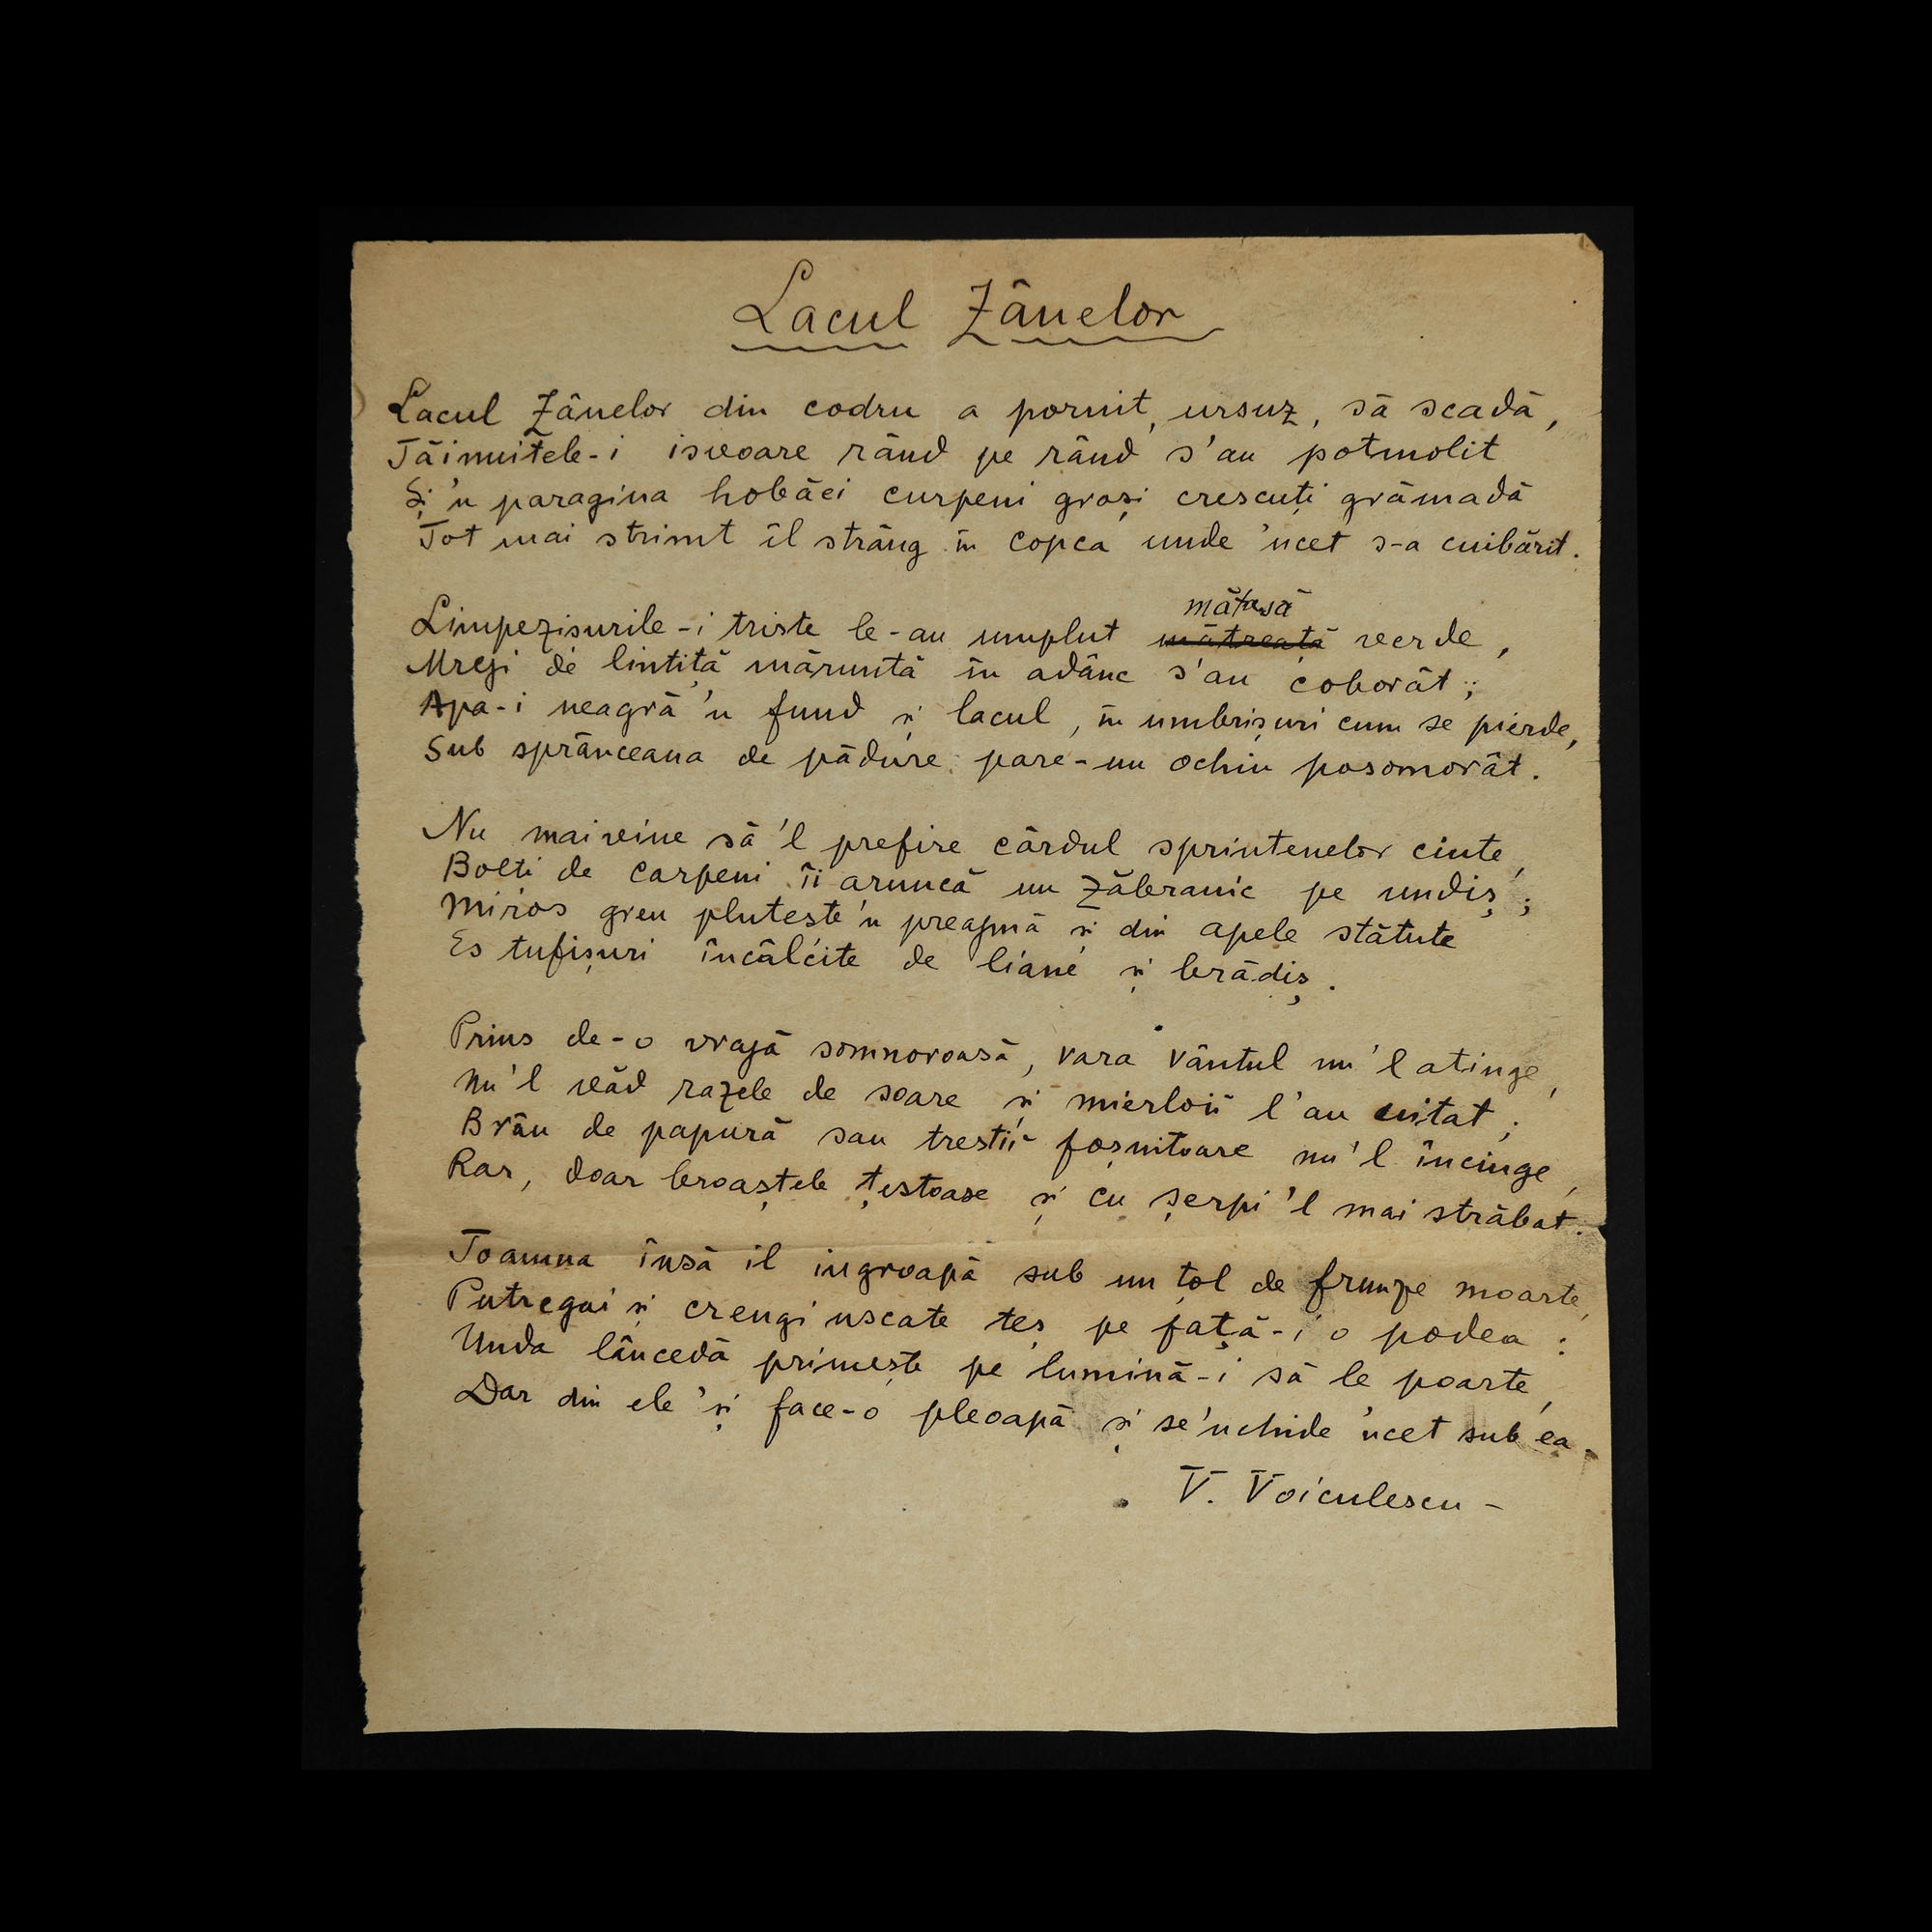 Lacul Zânelor
Lacul Zânelor din codru a pornit, ursuz, să scadă,
Tăinuitele-i isvoare rând pe rând s'au potmolit
Și 'n paragina hobăei curpeni groși crescuți grămadă
Tot mai strimt îl strâng în copca unde 'ncet s-a cuibărit.
mătasă
Limpezisurile-i triste le-au umplut mătreață verde,
Mreji de lintiță măruntă în adânc s'au coborât;
Apa-i neagră 'n fund și lacul, în umbrișuri cum se pierde,
Sub sprânceana de pădure pare-un ochiu posomorât.
Nu mai vine să 'l prefire cârdul sprintenelor ciute,
Bolți de carpeni îi aruncă un zăbranic pe undiș;
Miros greu plutește 'n preajmă și din apele stătute
Es tufișuri încâlcite de liane și brădiș.
Prins de-o vrajă somnoroasă, vara vântul nu 'l atinge,
Nu 'l văd razele de soare și mierloii l'au uitat;
Brâu de papură sau trestii foșnitoare nu 'l încinge,
Rar, doar broaștele țestoase și cu șerpi 'l mai străbat.
Toamna însă il ingroapă sub un țol de frunze moarte,
Putregai și crengi uscate teș pe față-i o podea:
Unda lâncedă primește pe lumină-i să le poarte,
Dar din ele 'și face-o pleoapă și se 'nchide 'ncet sub ea.
V. Voiculescu -